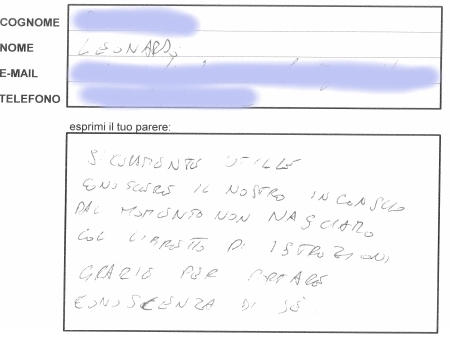 COGNOME
NOME LEONARDO
E-MAIL
TELEFONO
esprimi il tuo parere:
SICURAMENTE UTILE
CONOSCERE IL NOSTRO INCONSCIO
DAL MOMENTO NON NASCIAMO
COL LIBRETTO DI ISTRUZIONI
GRAZIE PER
CONOSCENZA DI SÉ